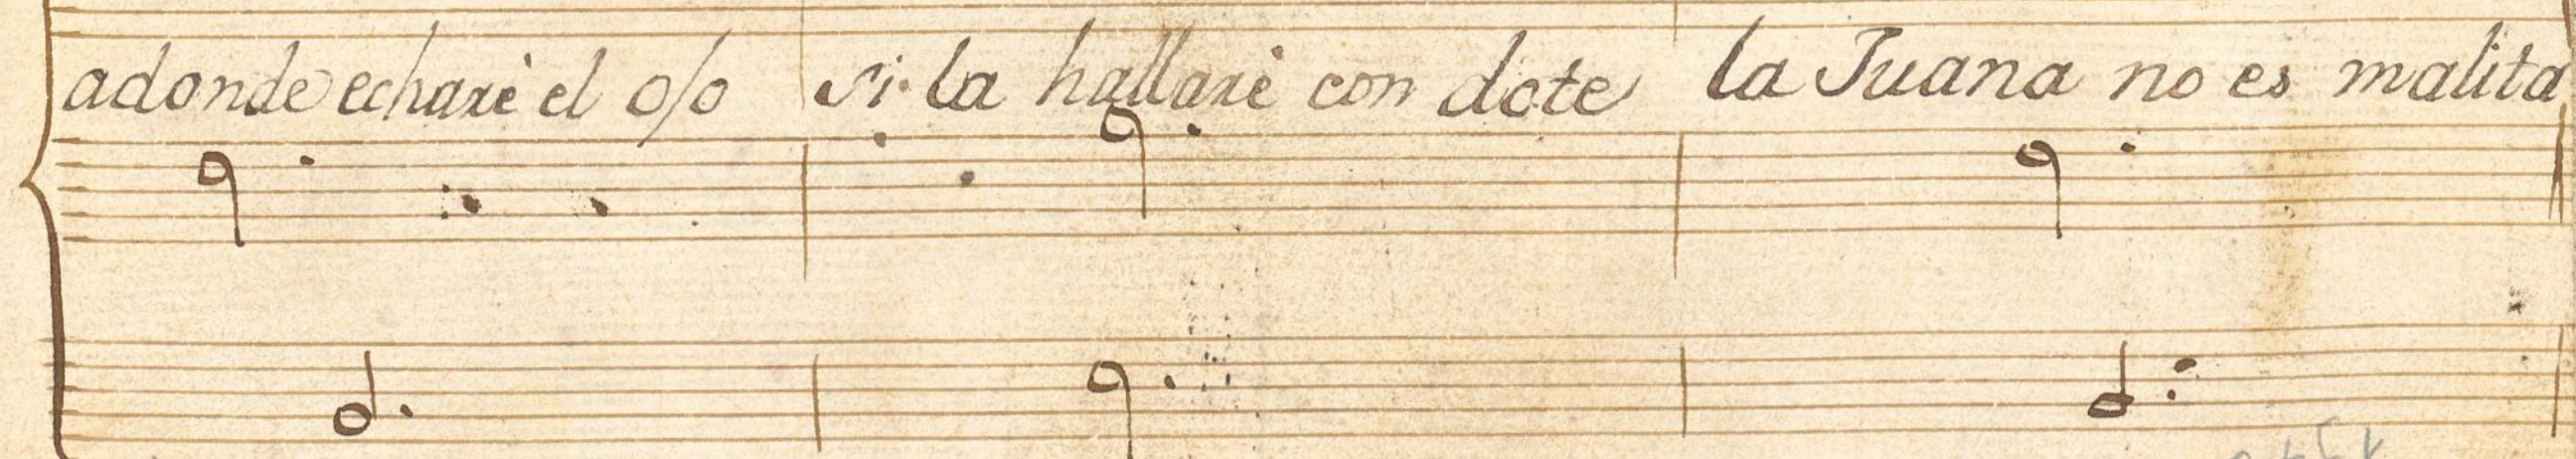 adonde echarè el ojo si la hallarè con dote la Juana no es malita